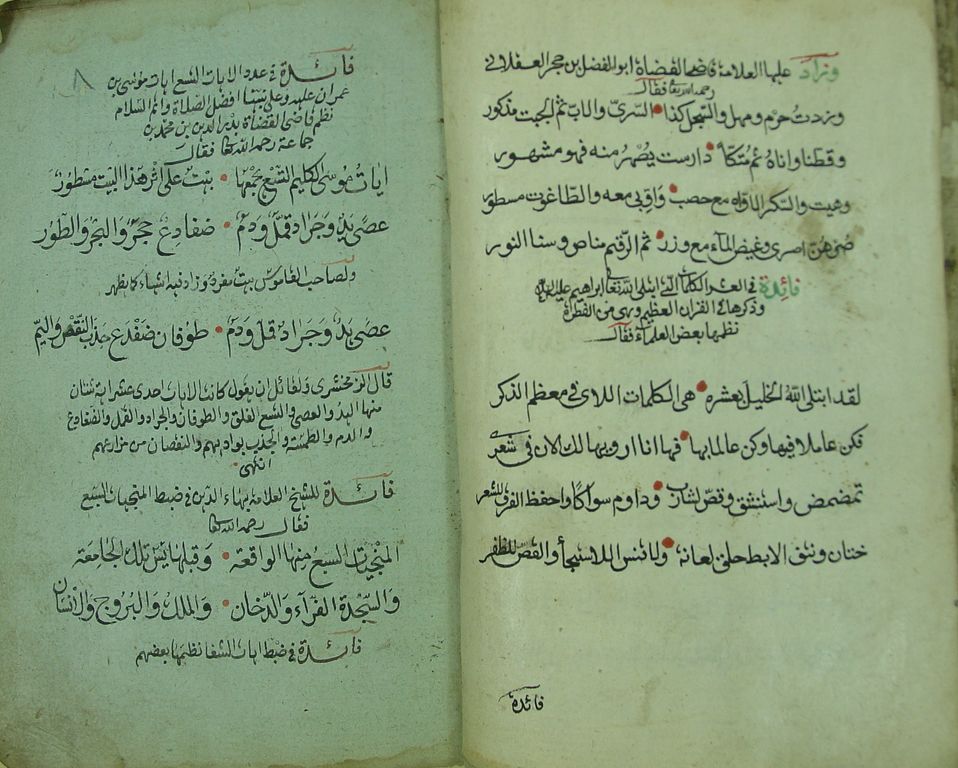 وزاد عليها العلامة قاضي القضاة ابو الفضل بن حجر العسقلاني
رحمه الله تعالى فقال
وزدت حرم ومهل والسجل كذا السرى والاب ثم الجبت مذكور
وقطنا واناه ثم متكأ دارست يصهر منه فهو مشهور
وهيت والسكر الاواه مع حصب واوبي معه والطاغوت مسطور
صرهن اصرى وغيض الماء مع وزر ثم الرقيم مناص وسنا النور
فائدة في العشر الكلمات التي ابتلى الله تعالى ابراهيم عليه السلام
وذكرها في القران العظيم وهي من الفطرة
نظمها بعض العلماء فقال
لقد ابتلى الله الخليل بعشرة هي الكلمات اللاي في معظم الذكر
فكن عاملا فيها وكن عالما بها فها انا ارويها لك الان في شعر
تمضمض واستنشق وقص لشارب وداوم سواكا واحفظ الفرق للشعر
ختان ونتف الابط حلق لعانة ولا تنس الاستنجا والقص للظفر
فائدة
فائدة في عدد الايات التسع ايات موسى بن
عمران عليه وعلى نبينا افضل الصلاة واتم السلام
نظم قاضي القضاة بدر الدين بن محمد بن
جماعة رحمه الله تعالى فقال
ايات موسى الكليم التسع يجمعها بيت على اثر هذا البيت مسطور
عصى يد وجراد قمل ودم ضفادع حجر والبحر والطور
ولصاحب القاموس بيت مفرد وزاد فيه اشياء كما يظهر
عصى يد وجراد قمل ودم طوفان ضفدع جذب النقص واليم
قال الزمخشري ولقائل ان يقول كانت الايات احدى عشر اية ثنتان
منها اليد والعصى والتسع الفلق والطوفان والجراد والقمل والضفادع
والدم والطمسة والجذب بواديهم والنقصان من مزارعهم
انتهى
فائدة للشيخ العلامة بهاء الدين في ضبط المنجيات السبع
فقال رحمه الله تعالى
المنجيات السبع منها الواقعة وقبلها يس تلك الجامعة
والسجدة الغرآء والدخان والملك والبروج والانسان
فائدة في ضبط ايات الشفا نظمها بعضهم